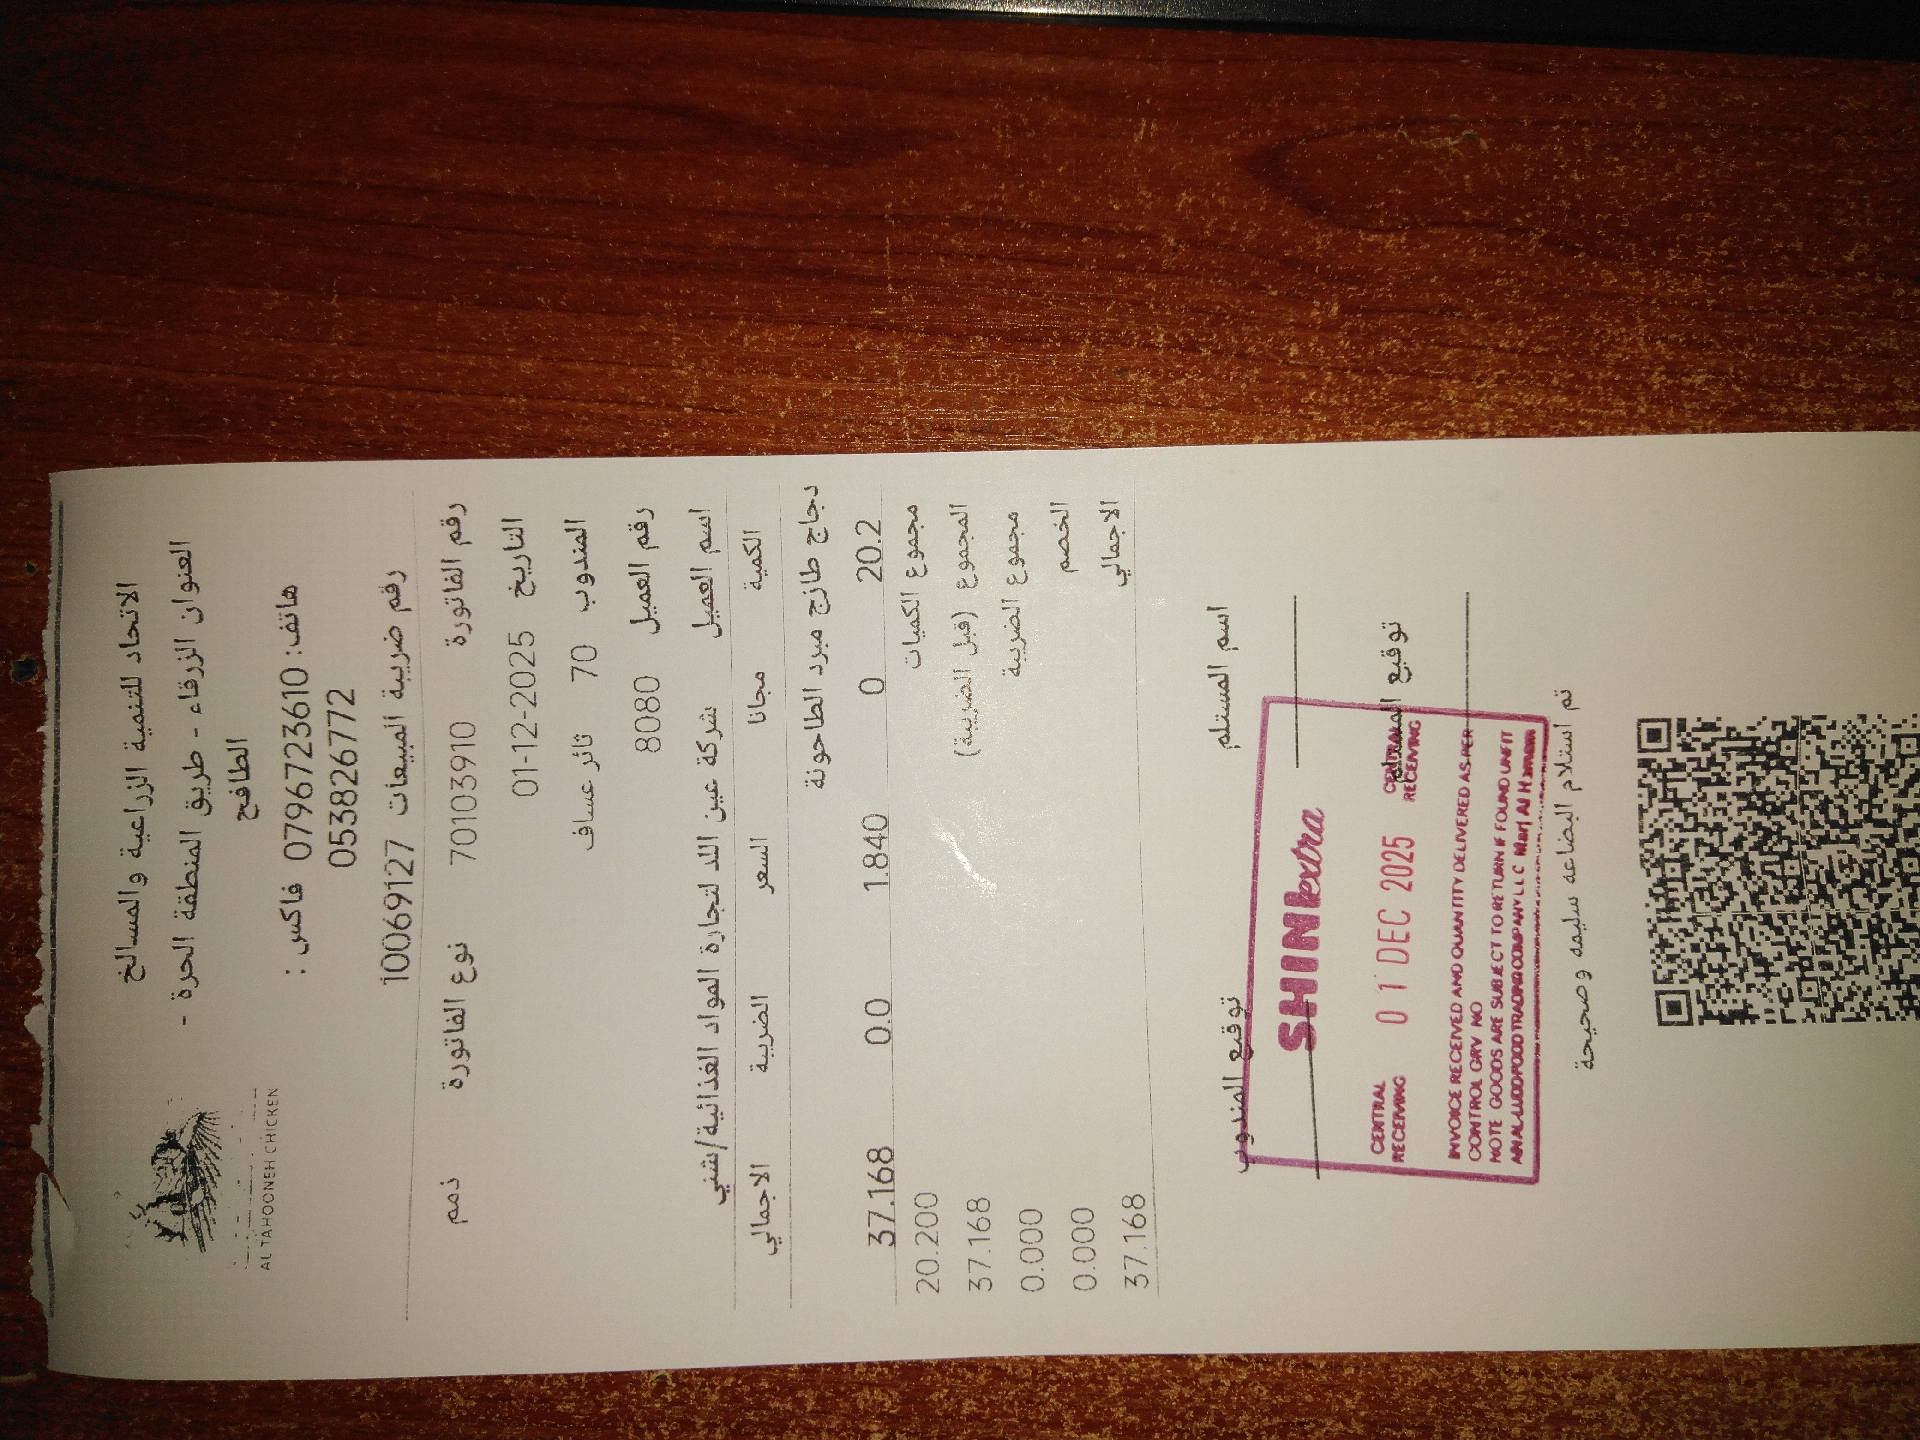 AL TAHOONEH CHICKEN
الاتحاد للتنمية الزراعية والمسالخ
العنوان الزرقاء - طريق المنطقة الحرة -
الطافح
هاتف: 0796723610 فاكس :
053826772
رقم ضريبة المبيعات 10069127
رقم الفاتورة 70103910 نوع الفاتورة ذمم
التاريخ 01-12-2025
المندوب 70 ثائر عساف
رقم العميل 8080
اسم العميل شركة عين اللد لتجارة المواد الغذائية/شني
الكمية مجانا السعر الضريبة الاجمالي
دجاج طازج مبرد الطاحونة
20.2 0 1.840 0.0 37.168
مجموع الكميات 20.200
المجموع (قبل الضريبة) 37.168
مجموع الضريبة 0.000
الخصم 0.000
الاجمالي 37.168
اسم المستلم توقيع المندوب
SHINIextra
توقيع المستلم
CENTRAL RECEIVING 01 DEC 2025 CENTRAL RECEIVING
INVOICE RECEIVED AND QUANTITY DELIVERED AS PER
CONTROL GRV NO
NOTE GOODS ARE SUBJECT TO RETURN IF FOUND UNFIT
FOOD TRADING COMPANY LLC Marj Al Hamam
تم استلام البضاعه سليمه وصحيحة